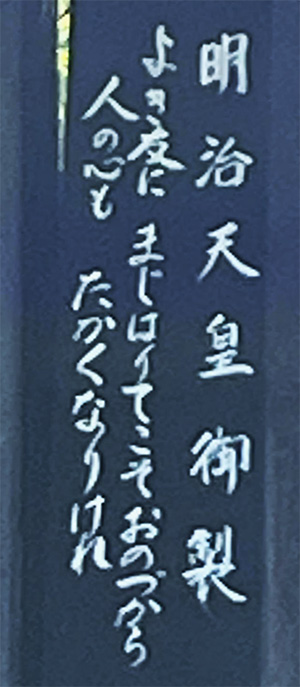 明治天皇御製
よき友に まじはりてこそ おのづから
人の心も たかくなりけれ